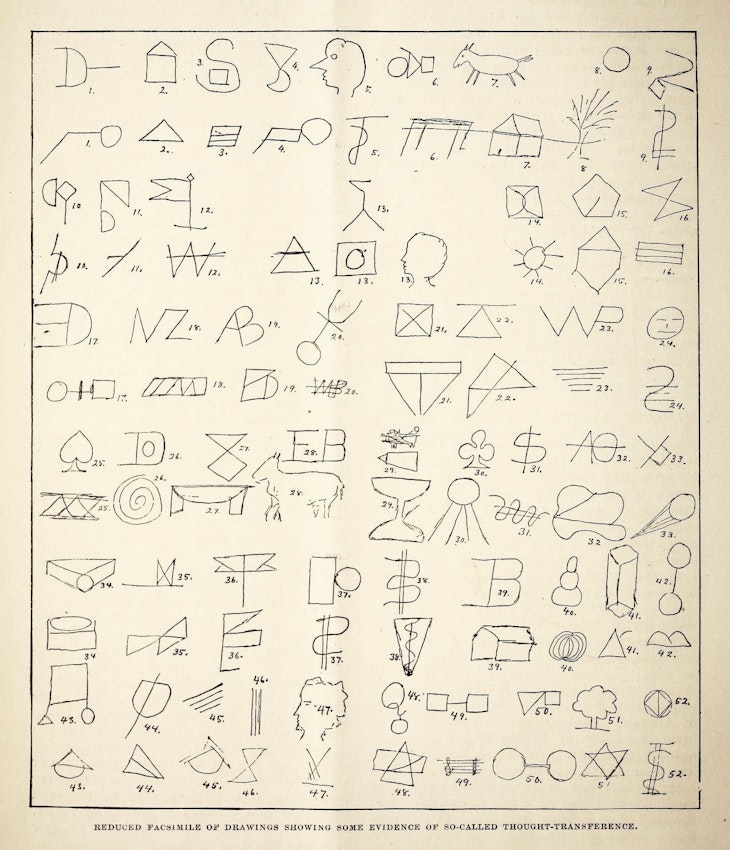 D 1. 2. 3. 4. 5. 6. 7. 8. 9.
1. 2. 3. 4. 5. 6. 7. 8 9.
10 11. 12. 13. 14. 15. 16
10. 11. W 12. 13. 13. 13. 14. 15. 16.
17. NZ 18. AB 19. 20. 21. 22. WP 23. 24.
17. 18. 19. WB 20. 21. 22. 23. 24.
25. 26. 27. EB 28. 29. 30. $ 31. 32. 33.
25. 26. 27. 28. 29. 30. 31. 32 33.
34. 35. 36. 37. 38. B 39. 40. 41. 42.
34 35. 36. 37. 38 39. 40. 41. 42.
43. 44. 45. 46. 47. 48. 49. 50. 51. 52.
43. 44. 45. 46. 47. 48. 49. 50. 51 52.
REDUCED FACSIMILE OF DRAWINGS SHOWING SOME EVIDENCE OF SO-CALLED THOUGHT-TRANSFERENCE.